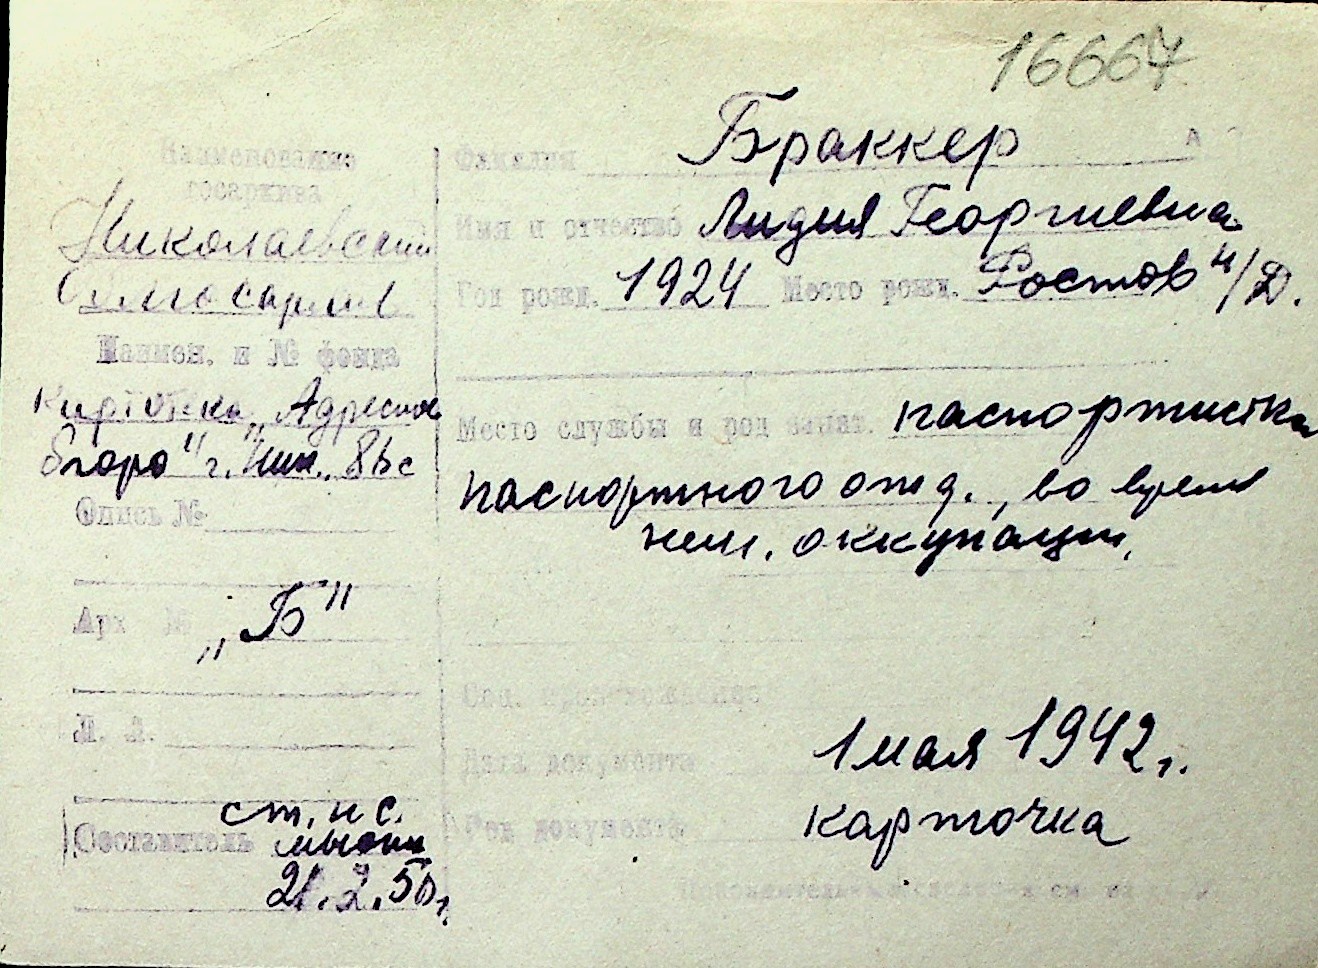 16667
Наименование
госархива
Николаевский
облгосархив
Наимен. и № фонда
Картотека „Адресное
бюро" г. Ник.
Опись №
Арх №
„Б"
Л. Л.
ст. н с.
Составитель
21.2.50г
Фамилия Браккер А
Имя и отчество Лидия Георгиевна
Год рожд. 1924 Место рожд. Ростов н/Д.
Место службы и род занят. паспортистка
паспортного отд., во время
нем. оккупации.
Соц. происхождение
Дата документа 1 мая 1942 г.
Род документа карточка
Дополнительные сведения см. на обор.